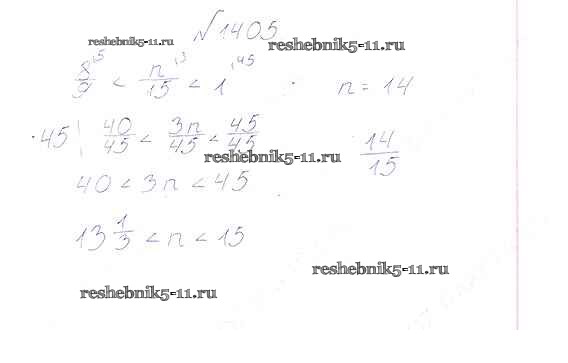 №1405
reshebnik5-11.ru
reshebnik5-11.ru
8/9 ^5 < n/15 ^3 < 1 ^45
n = 14
·45 | 40/45 < 3n/45 < 45/45
14/15
reshebnik5-11.ru
40 < 3n < 45
13 1/3 < n < 15
reshebnik5-11.ru
reshebnik5-11.ru